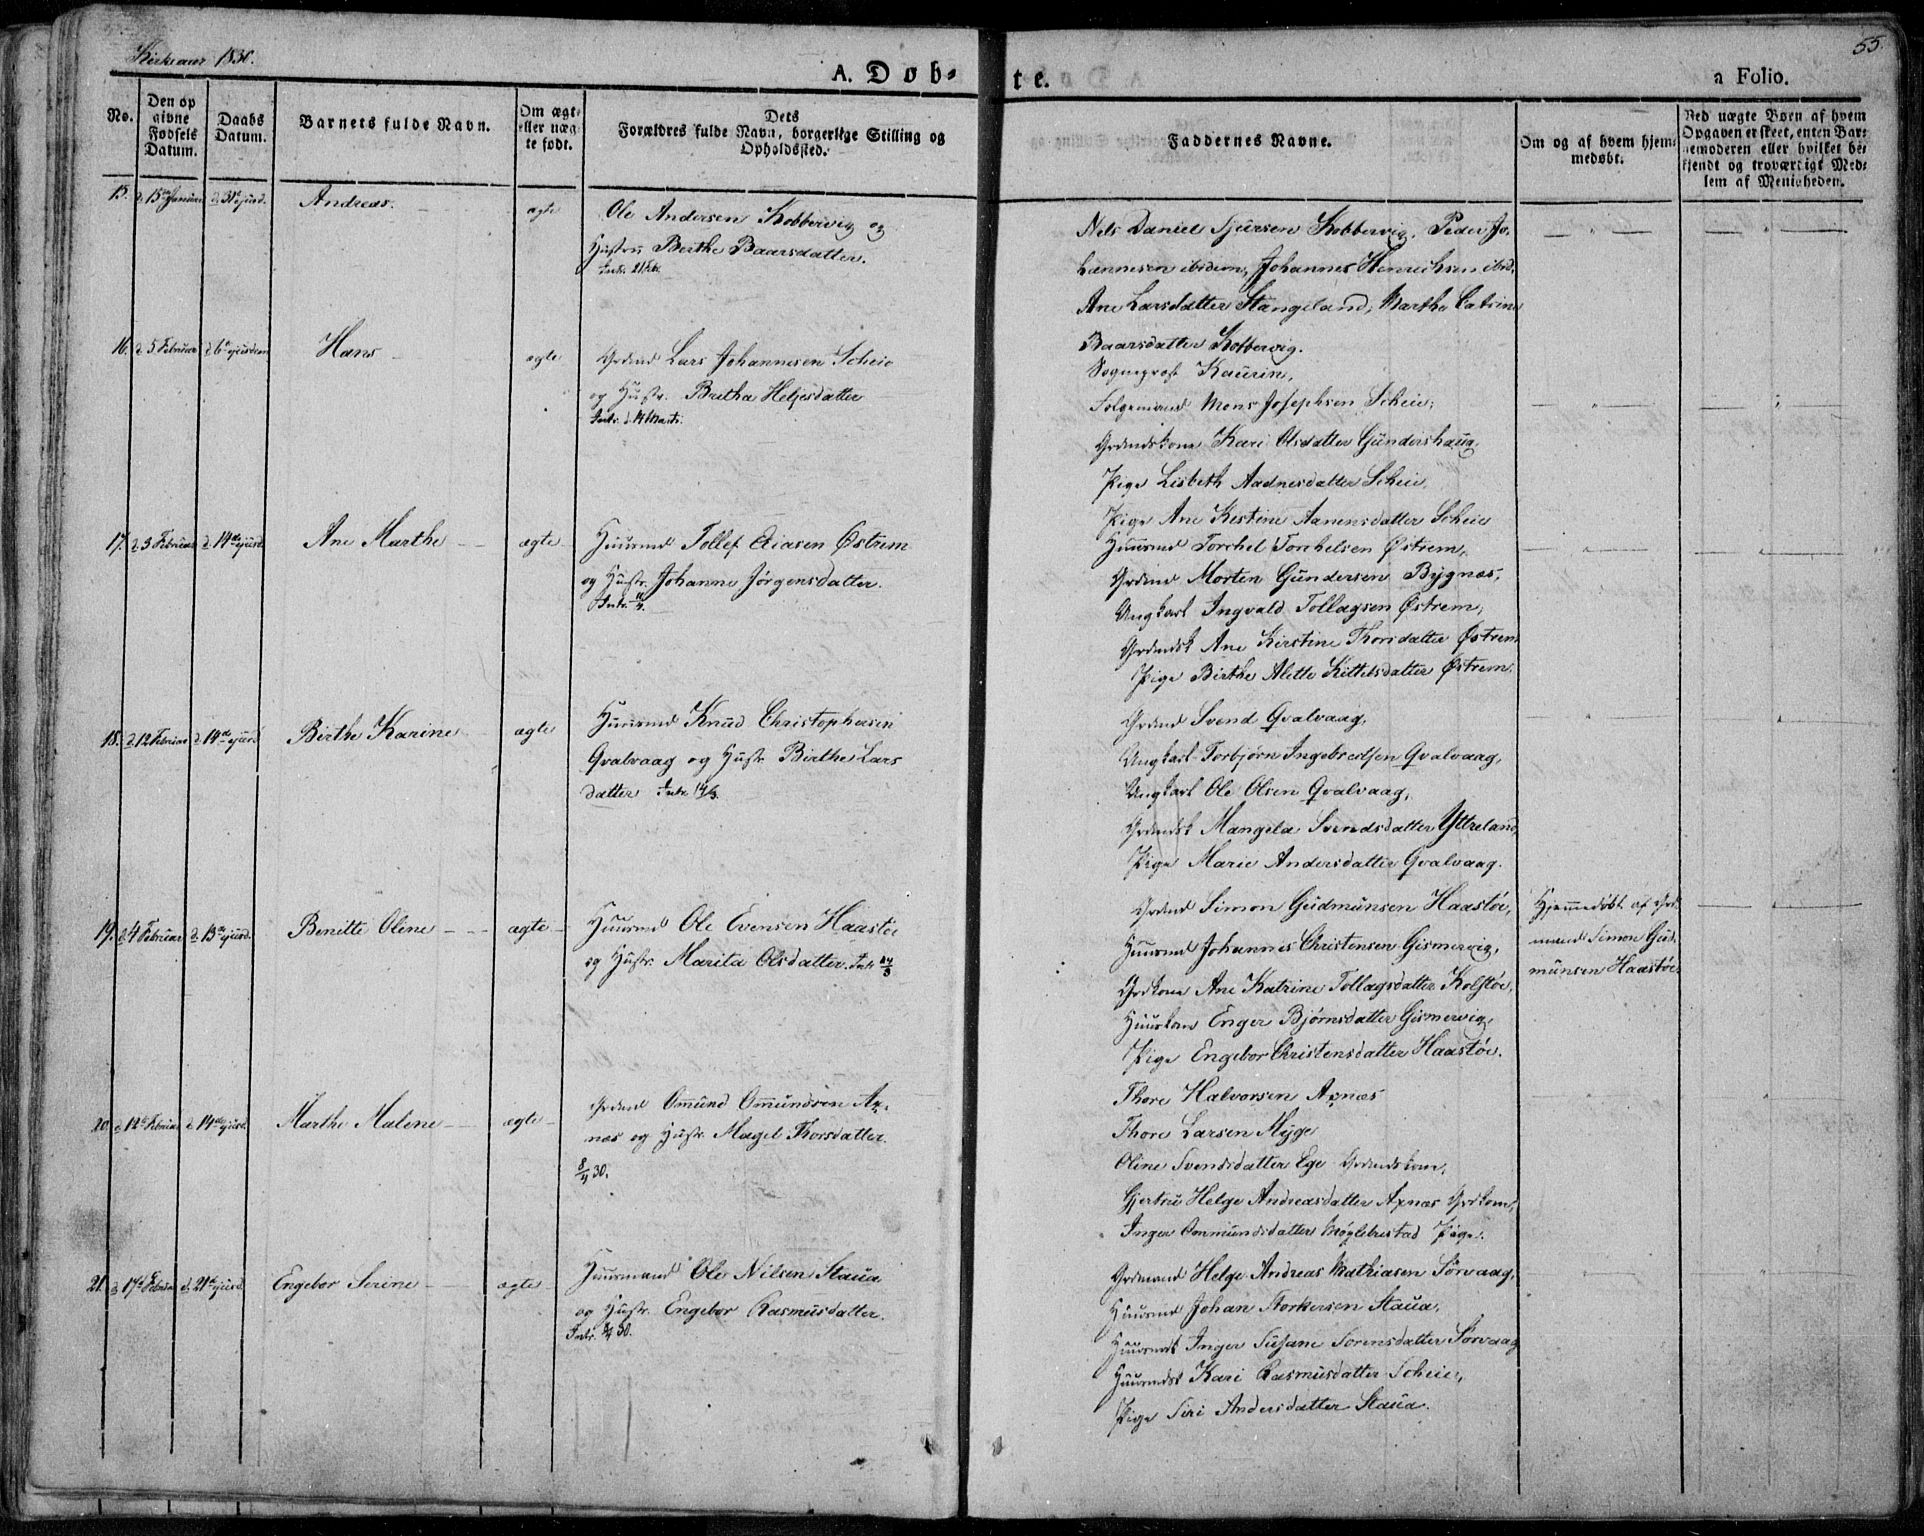 Kirkeaar 1830.
55.
A. Døb-
te.
a Folio.
No.
Den op
givne
Fødsels
Datum.
Daabs
Datum.
Barnets fulde Navn.
Om ægte
eller uæg-
te født.
Dets
Forældres fulde Navn, borgerlige Stilling og
Opholdssted.
Faddernes Navne.
Om og af hvem hjem-
medøbt.
Ved uægte Børn af hvem
Opgaven er skeet, enten Bar-
nemoderen eller hvilket be-
kjendt og troværdigt Med-
lem af Menigheden.
15. d. 15de Januar d. 31te ejusd. Andreas. ægte
Ole Andersen Kobbervig og
Hustru Berthe Baarsdatter.
Intr. 21 Feb.
Nels Daniel Sjursen Kobbervig, Peder Jo-
hannesen ibidem, Johannes Henrichsen ibid.
Ane Larsdatter Stangeland, Marthe Catrine
Baarsdatter Kobbervig.
16. d. 5 Februar d. 6te ejusdem Hans ægte
Grdmd Lars Johannesen Scheie
og Hustr. Bretha Heljesdatter
Intr. d. 14 Marti.
Sogneprest Kaurin,
Følgemand Mons Josephsen Scheie,
Grdmdskone Kari Olsdatter Gundershaug,
Pige Lisbeth Aadnesdatter Scheie,
Pige Ane Kestine Aanensdatter Scheie
17. d. 3 Februar d. 14de ejusd. Ane Marthe ægte
Huusmd Tollef Eiasen Østrem
og Hustr. Johanne Jørgensdatter.
Intr.
Huusmd Torchel Torchelsen Østrem,
Grdmd Morten Gundersen Bygnæs,
Ungkarl Ingvald Tollagsen Østrem,
Grdmdsk Ane Kirstine Thorsdatter Østrem
Pige Birthe Alette Kittelsdatter Østrem.
18. d. 12 Februar d. 14de ejusd. Birthe Karine ægte
Huusmd Knud Christophersen
Qvalvaag og Hustr. Birthe Lars
datter Intr. 14/3.
Grdmd Svend Qvalvaag,
Ungkarl Torbjørn Ingebretsen Qvalvaag,
Ungkarl Ole Olsen Qvalvaag,
Grdmdsk Mangela Svendsdatter Yttreland,
Pige Marie Andersdatter Qvalvaag.
19. d. 4 Februar d. 13de ejusd. Benitte Oline ægte
Huusmd Ole Evensen Haastøe
og Hustr. Marita Olsdatter. Intr. 14/3
Grdmd Simon Gudmunsen Haastøe,
Huusmd Johannes Christensen Gismervig,
Grdkone Ane Katrine Tollagsdatter Kolstøe,
Huuskone Enger Bjørnsdatter Gismervig,
Pige Engebor Christensdatter Haastøe.
Hjemmedøbt af Grd-
mand Simon Gud-
munsen Haastøe
20. d. 12te Februar d. 14de ejusd. Marthe Malene ægte
Grdmd Omund Omundsen Ax-
næs og Hustr. Magel Thorsdatter.
8/4 30.
Thore Halvorsen Axnæs
Thore Larsen Myge
Oline Svendsdatter Ege Grdmdskone,
Gjertru Helge Andreasdatter Axnæs Grdkone,
Inger Ommundsdatter Møglebustad Pige.
21. d. 17de Februar d. 21de ejusd. Engebor Serine ægte
Huusmand Ole Nilsen Staua
og Hustr. Engebor Rasmusdatter.
Intr. 30.
Grdmand Helge Andreas Mathiasen Sørvaag,
Huusmd Johan Storkersen Staua,
Huusmdsk Inger Susane Sorensdatter Sørvaag
Huusmdsk Kari Rasmusdatter Scheie,
Pige Siri Andersdatter Staua.